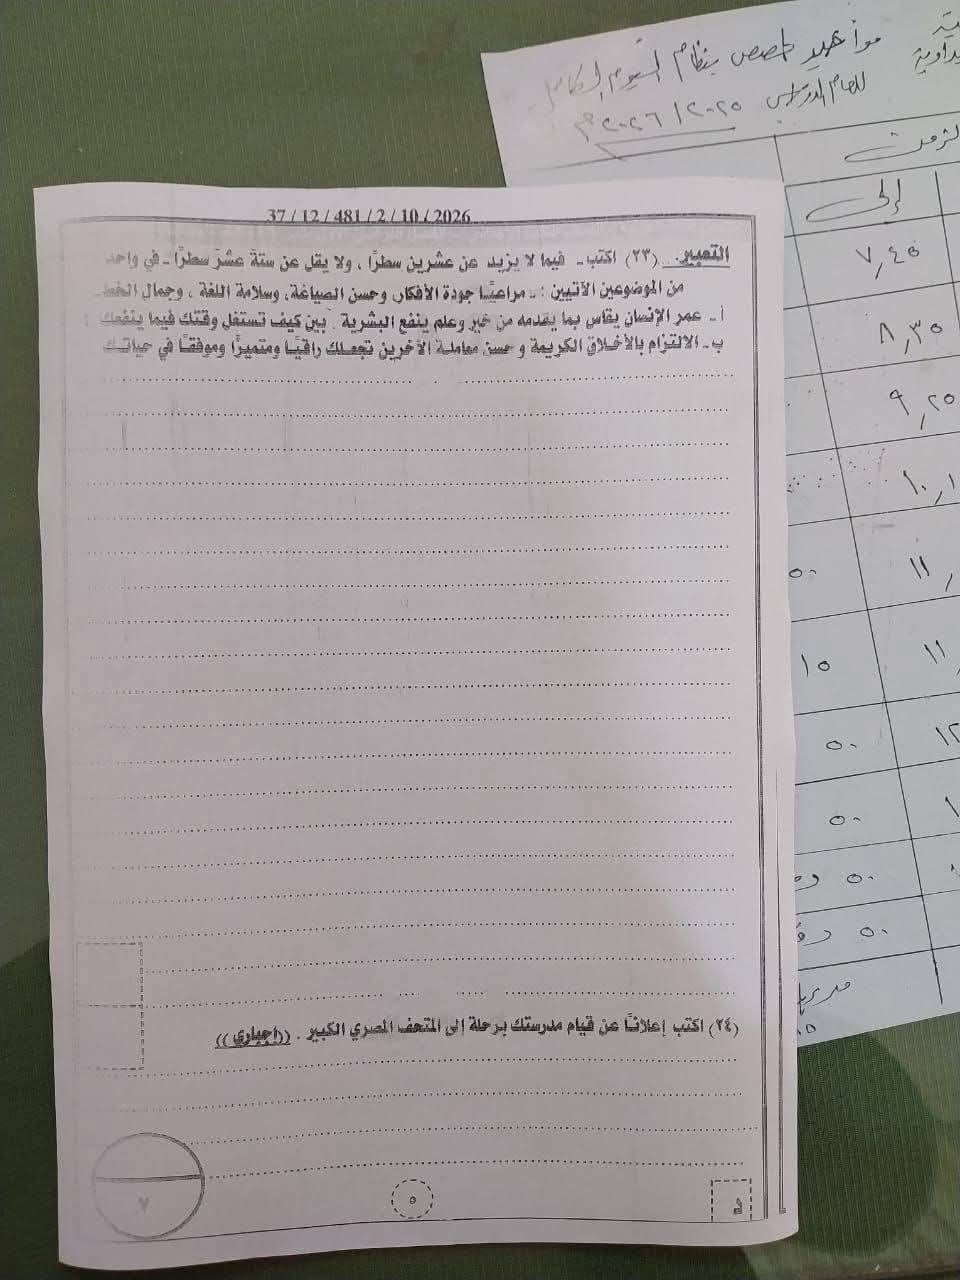 مواعيد حصص بنظام اليوم الكامل
للعام الدراسي ٢٠٢٥ / ٢٠٢٦ م
إلى
٧,٤٥
٨,٣٥
٩,٢٥
١٠,١
١١,
٥٠
١١,
١٥
١٢
٥٠
١
٥٠
٥٠ د
٥٠ دق
37 / 12 / 481 / 2 / 10 / 2026
التعبير. (٢٣) اكتب - فيما لا يزيد عن عشرين سطرًا ، ولا يقل عن ستةَ عشرَ سطرًا - في واحد
من الموضوعين الآتيين : - مراعيًا جودة الأفكار, وحسن الصياغة، وسلامة اللغة ، وجمال الخط.
أ - عمر الإنسان يقاس بما يقدمه من خير وعلم ينفع البشرية . بين كيف تستغل وقتك فيما ينفعك !
ب - الالتزام بالأخلاق الكريمة و حسن معاملة الآخرين تجعلك راقيًا ومتميزًا وموفقًا في حياتك
(٢٤) اكتب إعلانًا عن قيام مدرستك برحلة إلى المتحف المصري الكبير . ((اجباري ))
٧
٥